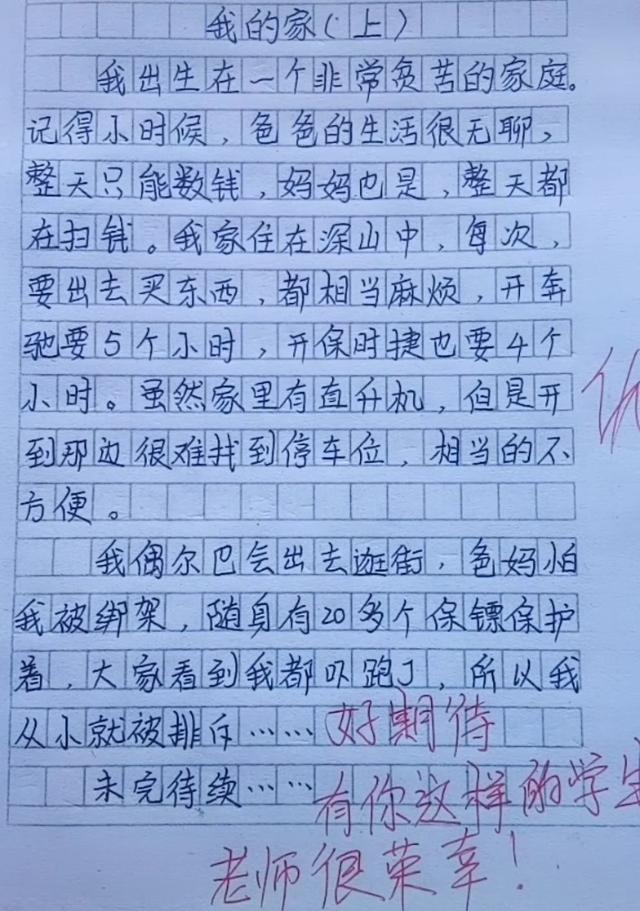 我的家(上)
我出生在一个非常贫苦的家庭。
记得小时候,爸爸的生活很无聊,
整天只能数钱,妈妈也是,整天都
在扫钱。我家住在深山中,每次,
要出去买东西,都相当麻烦,开奔
驰要5个小时,开保时捷也要4个
小时。虽然家里有直升机,但是开
到那边很难找到停车位,相当的不
方便。
我偶尔也会出去逛街,爸妈怕
我被绑架,随身有20多个保镖保护
着,大家看到我都吓跑了,所以我
从小就被排斥……好期待
未完待续……有你这样的学生
老师很荣幸!